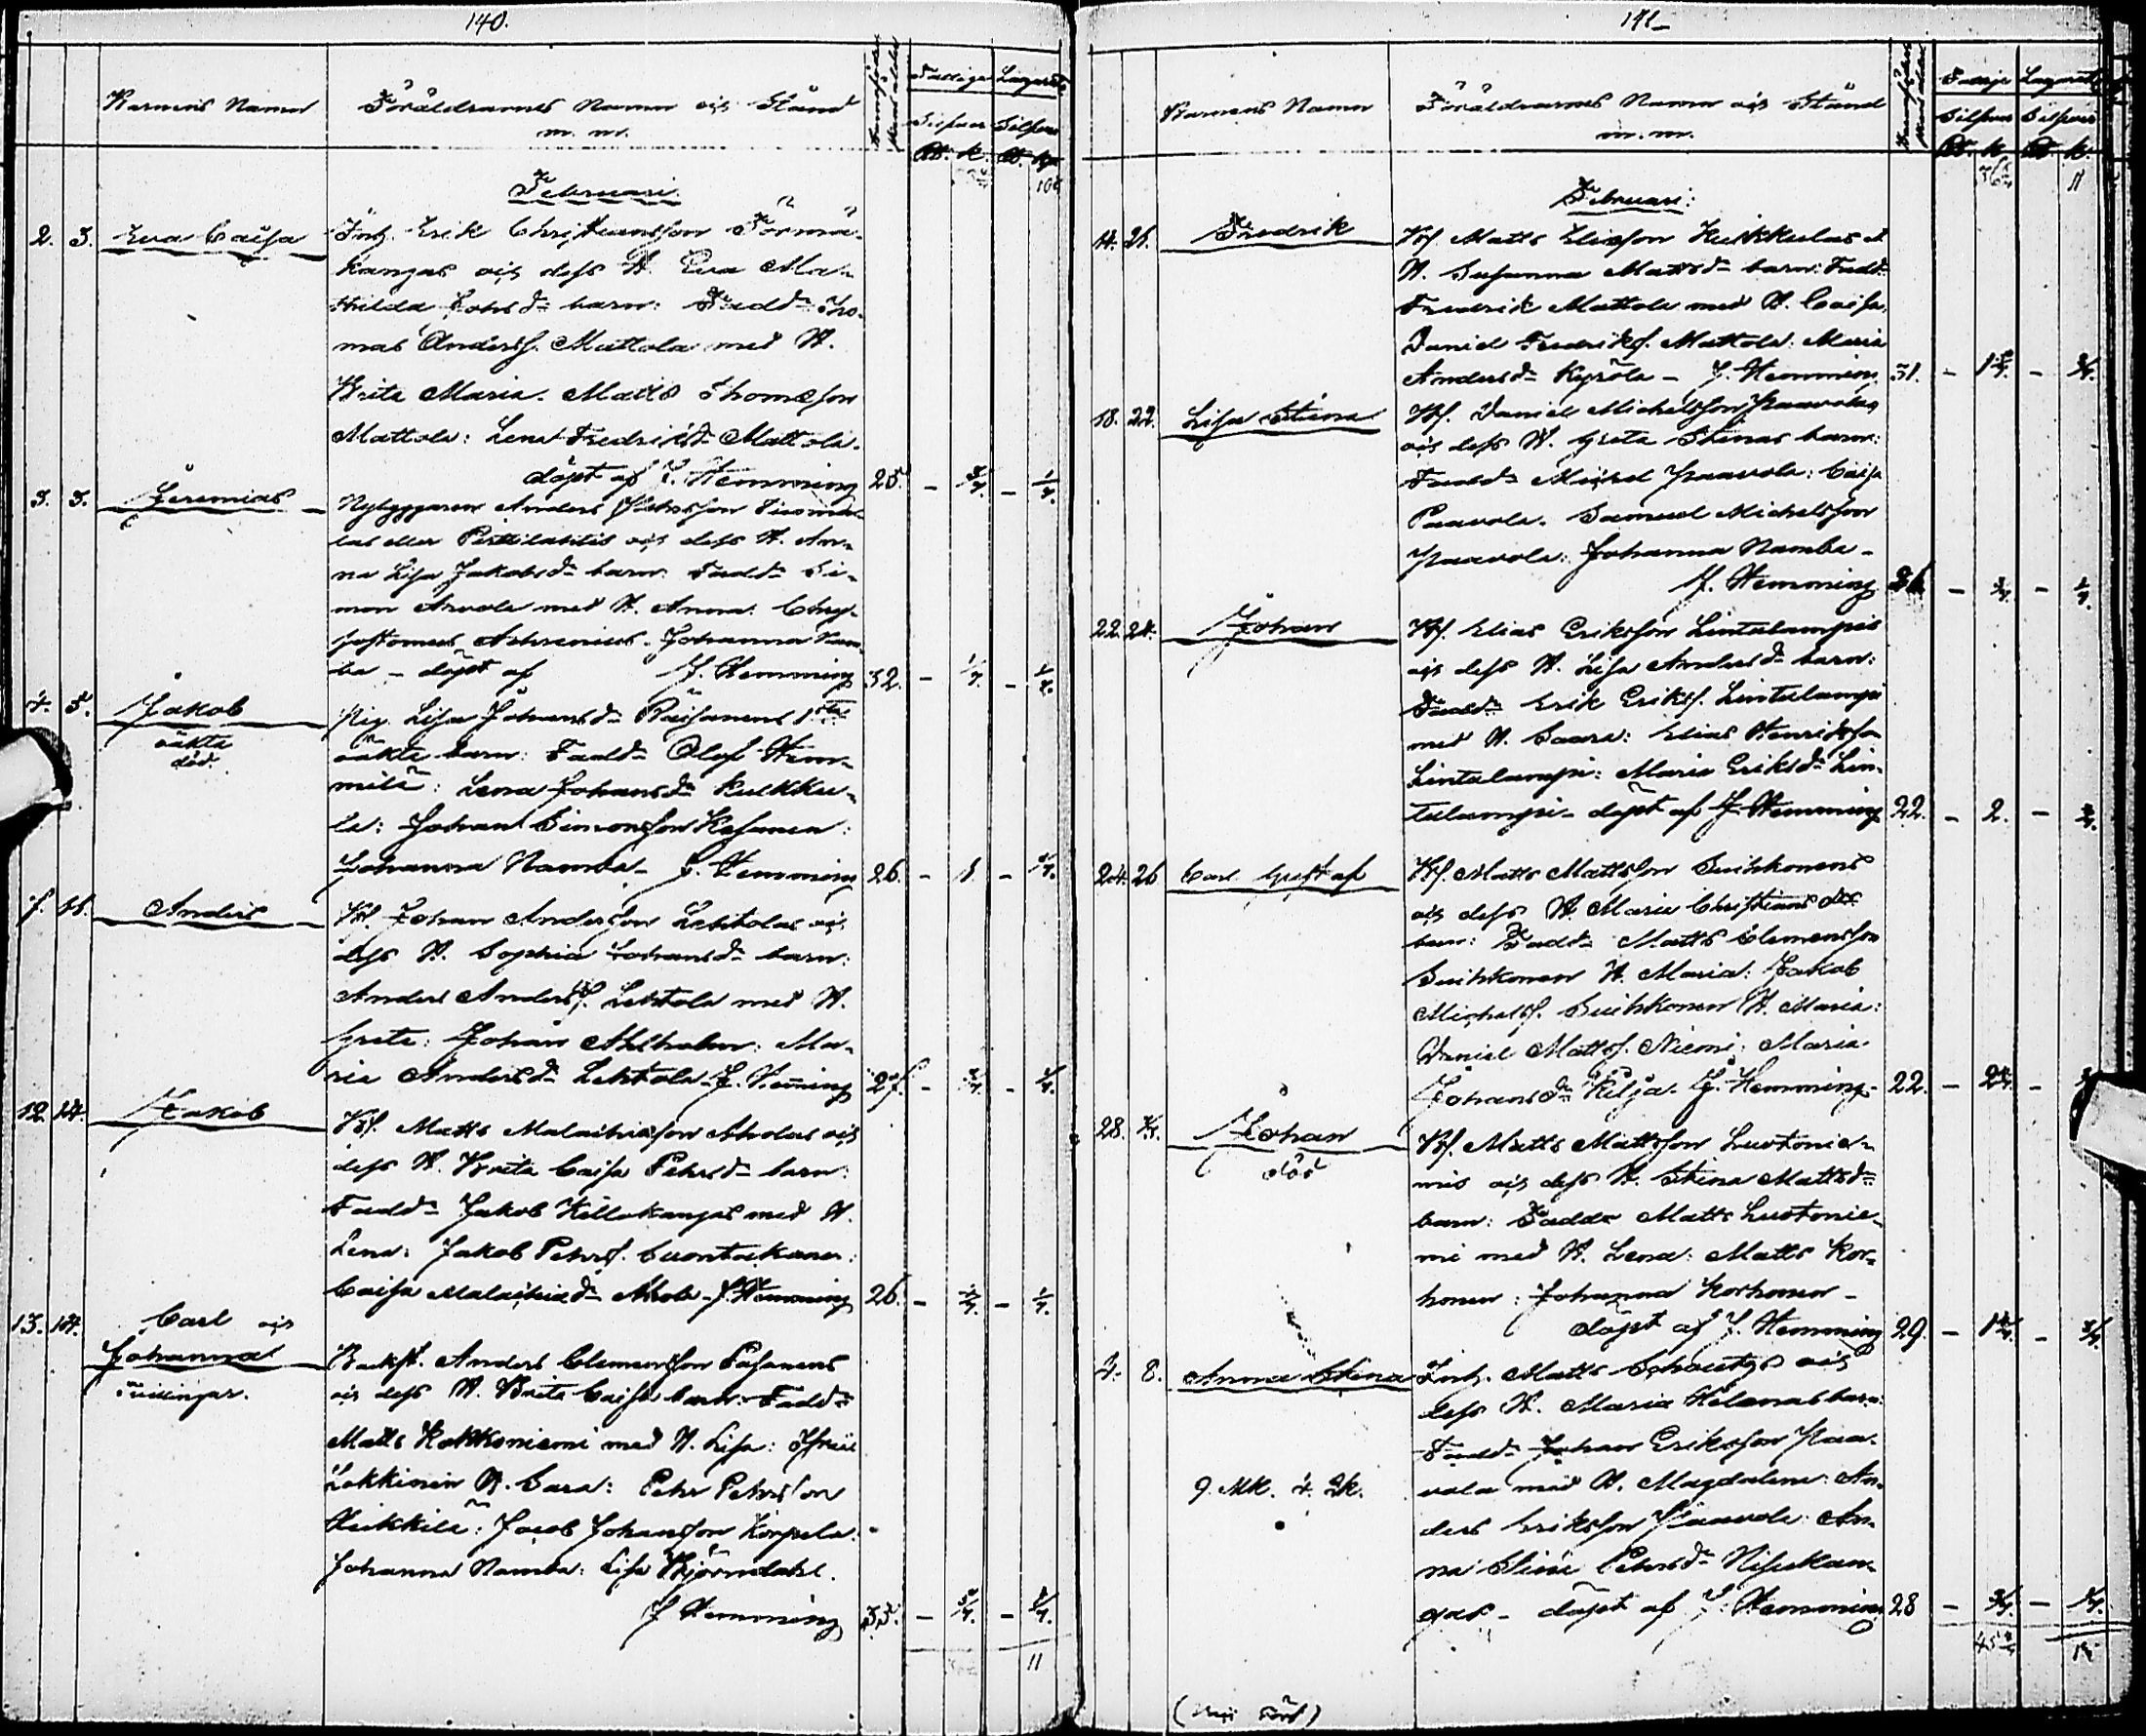 140.
Barnens Namn
Föräldrarnes Namn och Stånd
m. m.
Fattige Lazarett
Silfver Silfver
R. k. R. k.
Februari.
2. 3. Eva Caisa
Inh. Erik Christiansson Törmä-
kangas och dess H. Eva Ma-
thilda Johsdr barn: Fadd: Tho-
mas Anderss. Mattola med H.
Brita Maria. Matts Thomsson
Mattola: Lena Fredriksdr Mattola.
döpt af J. Hemming 25. – 3/7. – 1/7.
3. 3. Jeremias
Nybyggaren Anders
eller Perttilahtis och dess H. An-
na Lisa Jakobsdr barn: Fadd: Si-
mon Arvola med H. Anna: Chry-
sostomus Achrenius. Johanna Nam-
ba – döpt af J. Hemming 32.
4. 5. Jakob
oäkta
död.
Pig. Lisa Johansdr Räisänens 1sta
oäkta barn: Fadd: Olof Hem-
milä: Lena Johansdr Kulkku-
la: Johan Simonsson Kesänen:
Johanna Namba – J. Hemming 26. – 1. –
7. 11. Anders
Bd. Johan Andersson Lehtolas och
dess H. Sophia Johansdr barn:
Anders Anderss. Lehtola med H.
Greta: Johan Ahlholm: Ma-
ria Andersdr Lehtola. J. Heming 27.
12. 14. Jakob
Bd. Matts Malachiasson Aholas och
dess H. Brita Caisa Pehrsdr barn:
Fadd: Jakob Kellokangas med H.
Lena: Jakob Pehrss. Cuontakanen:
Caisa Malachiadr Ahola – J. Hemming 26.
13. 14. Carl och
Johanna
tvillingar.
Backst. Anders Clemensson Pasanens
och dess H. Brita Caisa barn: Fadd:
Matts Kokkoniemi med H. Lisa:
Lokkinen H. Cara: Pehr Pehrsson
Heikkilä: Jacob Johansson Korpela:
Johanna Namba: Lisa Björndahl.
J Hemming 33.
11
141
Barnens Namn
Föräldrarnes Namn och Stånd
m. m.
Fattige Lazarett
Silfver Silfver
R. k. R. k.
11
Februari:
14. 21. Fredrik
Bd. Matts Eliasson Kulkkulas &
H. Susanna Mattsdr barn: Fadd:
Fredrik Mattola med H. Caisa.
Daniel Fredrikss. Mattola. Maria
Andersdr Kyrölä – J. Hemming 31.
18. 22. Lisa Stina
Bd. Daniel Michelsson Paavolas
och dess H. Greta Stinas barn:
Fadd: Michel Paavola: Caisa
Paavola. Samuel Michelsson
Paavola: Johanna Namba –
J. Hemming
22. 24. Johan
Bd. Elias Eriksson Lintulampis
och dess H. Lisa Andersdr barn:
Fadd: Erik Erikss. Lintulampi
med H. Saara: Elias Henriksson
Lintulampi: Maria Eriksdr Lin-
tulampi – döpt af J Hemming 22. – 2. –
24. 26 Carl Gustaf
Bd. Matts Mattsson Suihkonens
och dess H. Maria Christiansdr
barn: Fadd: Matts Clemensson
Suihkonen H. Maria: Jakob
Michelss. Suihkonen H. Maria:
Daniel Mattss. Niemi: Maria
Johansdr Kilja. J. Hemming. 22.
28. Johan
död
Bd. Matts Mattsson Luotonie-
mis och dess H. Stina Mattsdr
barn: Fadd: Matts Luotonie-
mi med H. Lena: Matts Kor-
honen: Johanna Korhonen –
döpt af J. Hemming 29.
4. 8. Anna Stina
Inh. Matts och
dess H. Maria Helenas barn:
Fadd: Johan Eriksson Paa-
vola med H. Magdalena: An-
ders Eriksson Paavola: An-
na Stina Pehrsdr Nisukan-
gas – döpt af J. Hemming 28
9. Mk. 4. 2k.